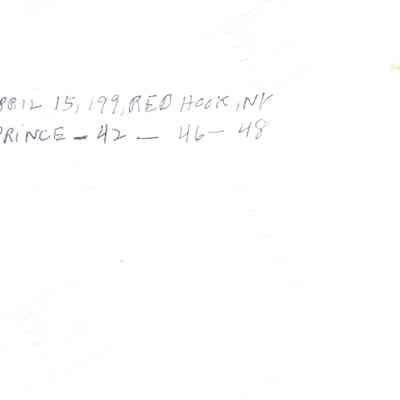 PRIL 15, 199, RED HOOK, NY
PRINCE - 42 - 46 - 48